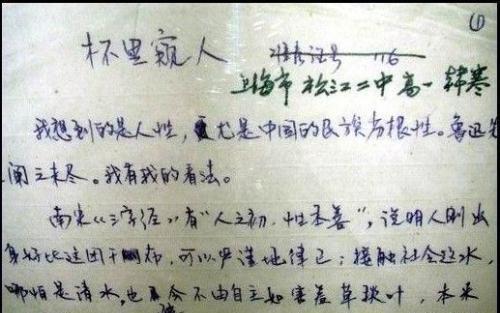 ①
杯里窥人
准考证号 116
上海市松江二中高一 韩寒
我想到的是人性,尤是中国的民族劣根性。鲁迅先
阐之未尽。我有我的看法。
南宋《三字经》有"人之初,性本善",说明人刚出
身好比这团干布,可以严谨地律己;接触社会这水,
哪怕是清水,也会不由自主如害羞草般叶,本来